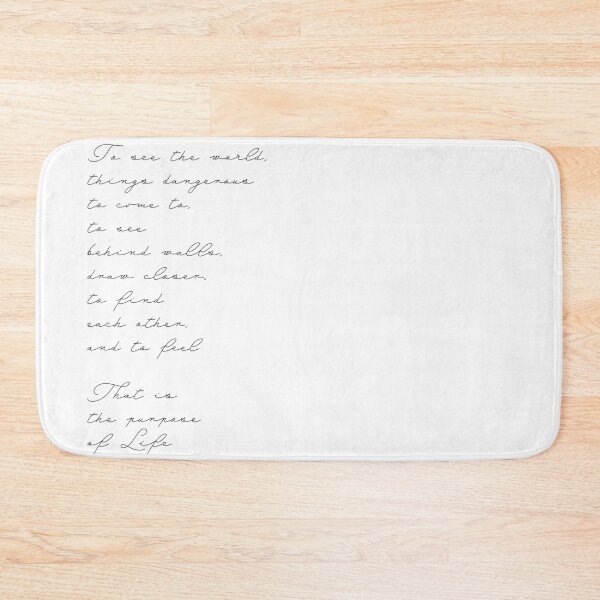 To see the world,
things dangerous
to come to,
to see
behind walls,
draw closer,
to find
each other,
and to feel
That is
the purpose
of Life